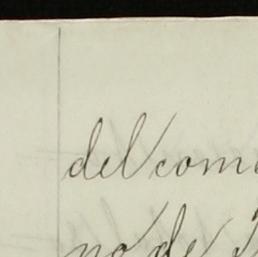 del com
no de